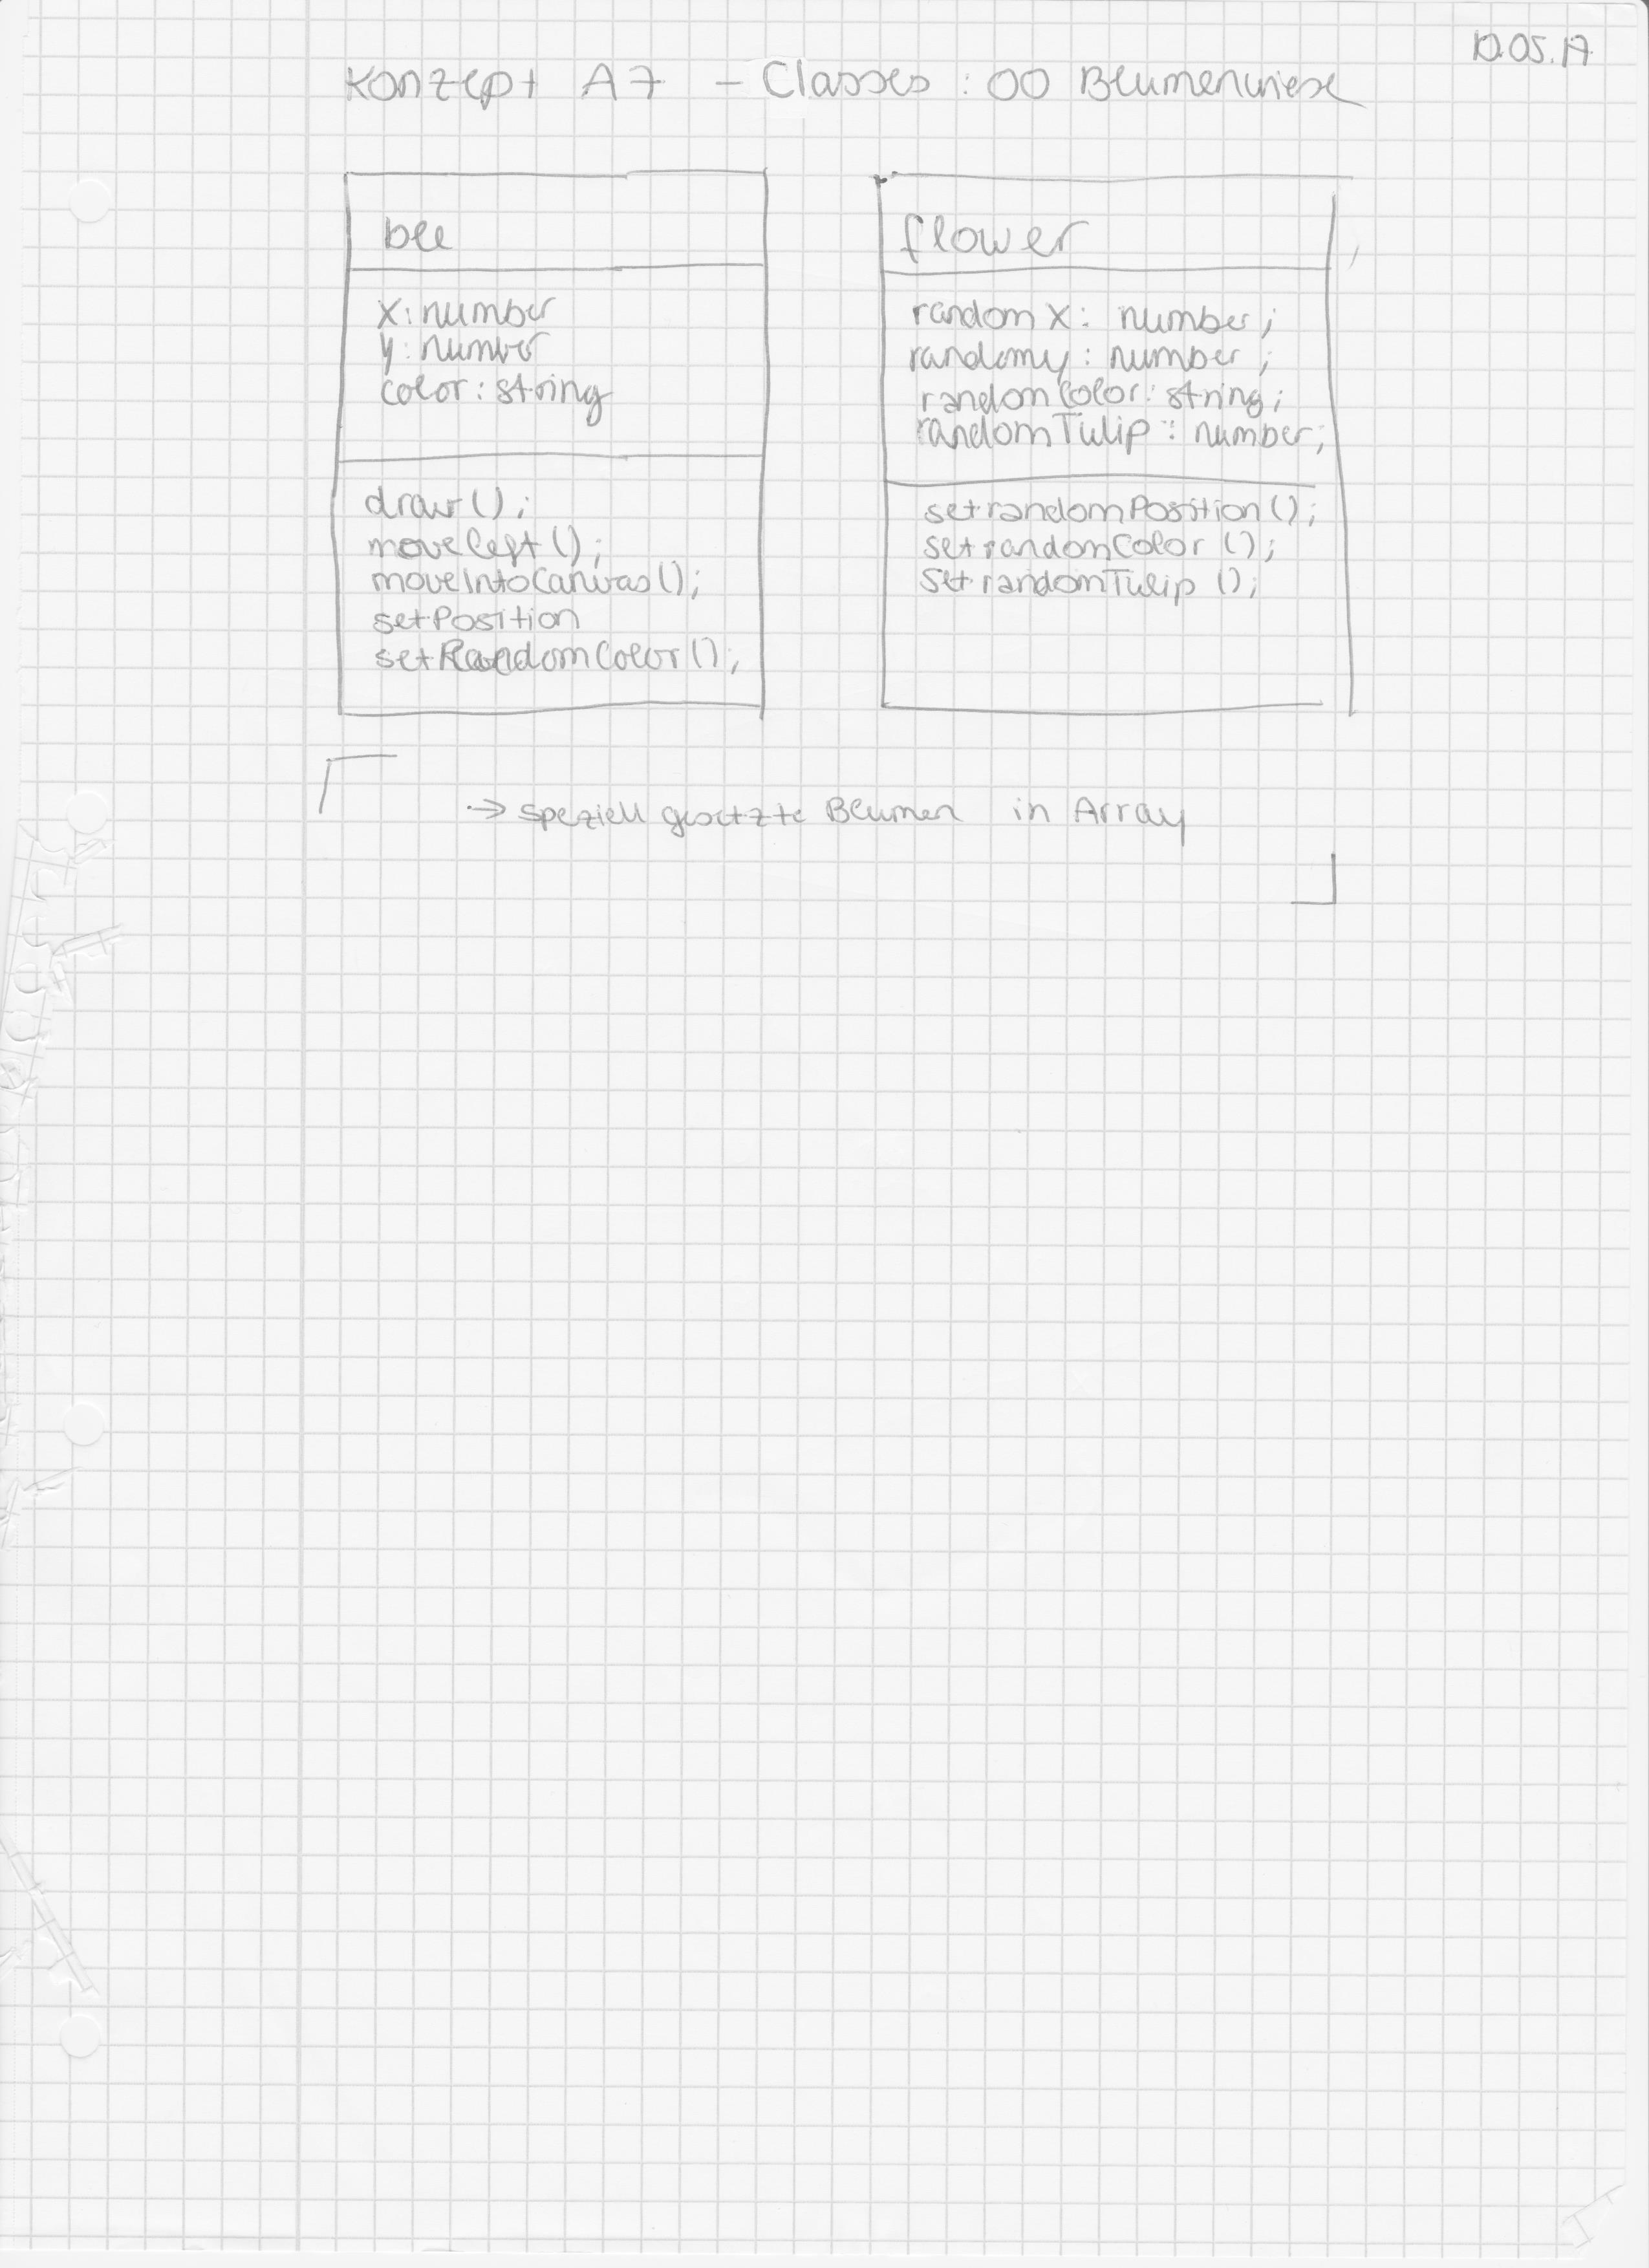 10.05.17
Konzept A7 – Classes : OO Blumenwiese
bee
x: number
y: number
color: string
draw();
moveleft();
moveIntoCanvas();
setPosition
setRandomColor();
flower
randomx: number;
randomy: number;
randomColor: string;
randomTulip: number;
setrandomPosition();
setrandomColor();
setrandomTulip();
-> speziell gesetzte Blumen in Array